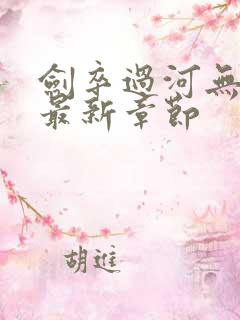 劍卒過河無
最新章節
胡進